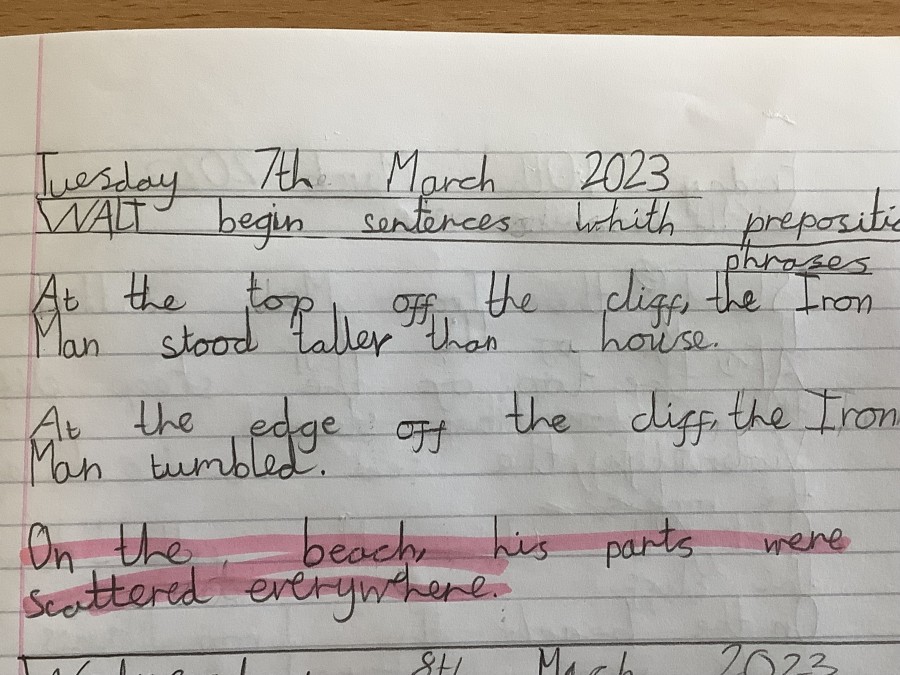 Tuesday 7th March 2023
WALT begin sentences whith
phrases
At the top off the cliff, the Iron
Man stood taller than house.
At the edge off the cliff, the Iron
Man tumbled.
On the beach, his parts were
scattered everywhere.
8th March 2023